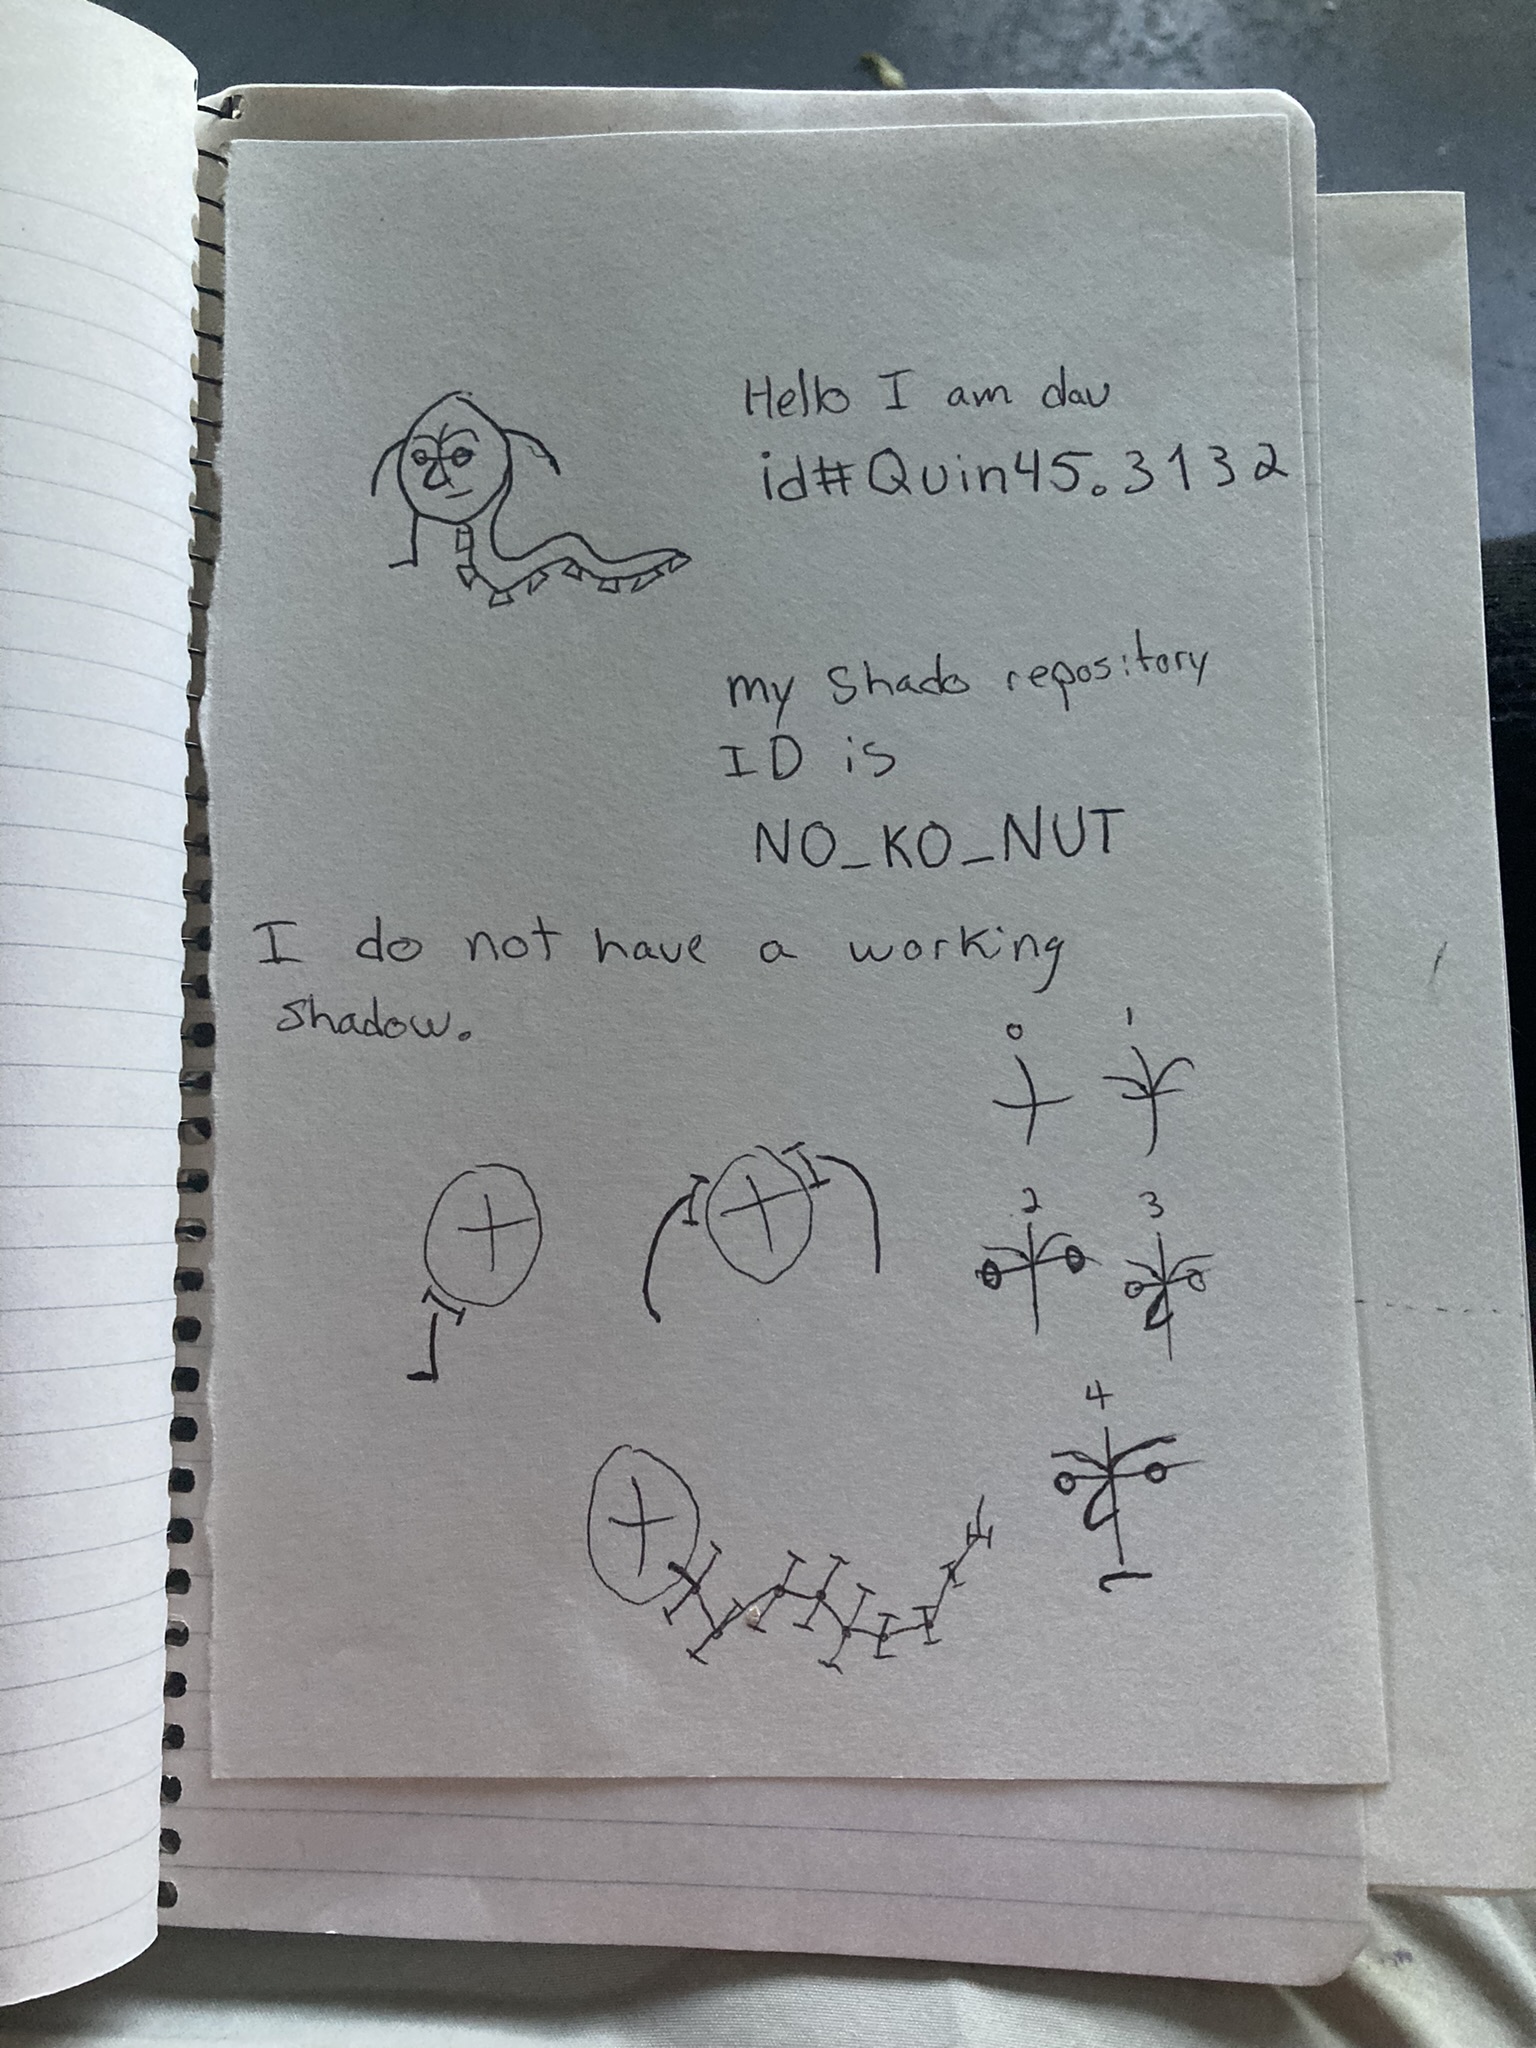 Hello I am dav
id#Quin45.3132
my Shado repository
ID is
NO_KO_NUT
I do not have a working
shadow.
0 1
2 3
4